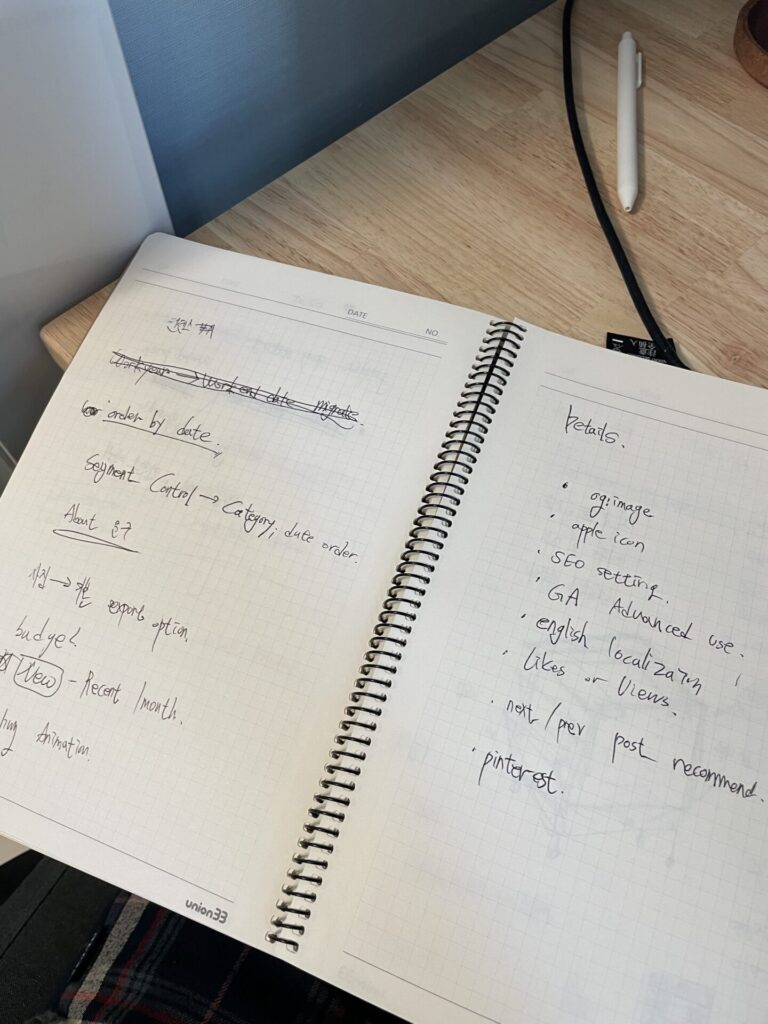 DATE
NO
Work year → Work end date migrate.
order by date.
Segment Control → Category, date order.
About 문구
사진 → export option.
budget
New - Recent /month.
Animation.
union33
Details.
· og:image
· apple icon
· SEO setting.
· GA Advanced use.
· english localization
· Likes or Views.
· next/prev post recommend.
· pinterest.